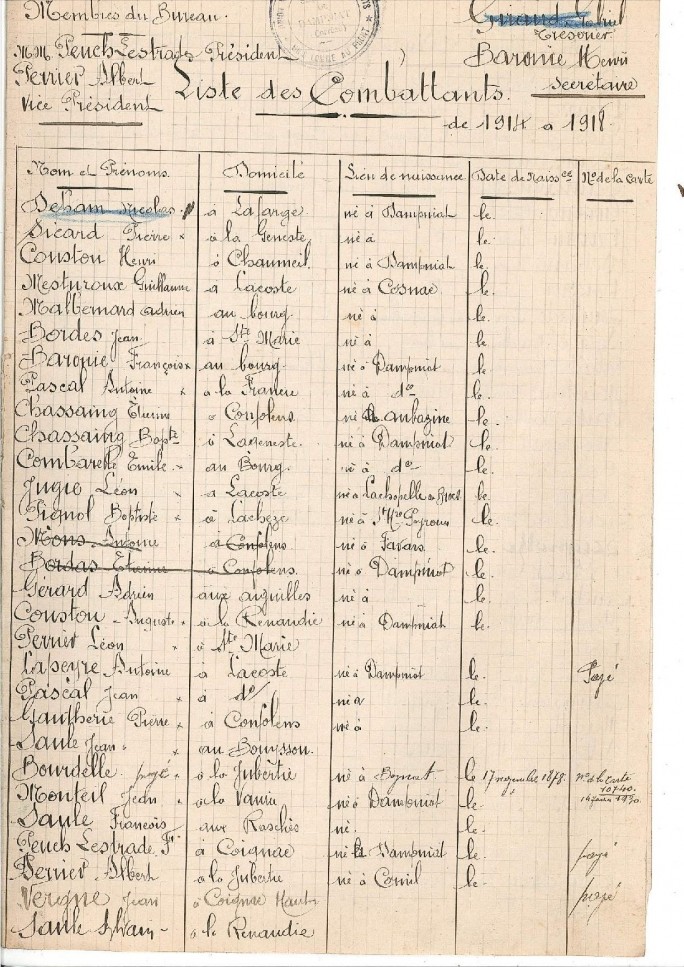 Membres du Bureau.
M.M. Peuch Lestrade Président
Perrier Albert
Vice Président
Trésorier
Baronie Henri
Secrétaire
Liste des Combattants.
de 1914 a 1918
Nom et Prénoms. Domicilé Lieu de naissance Date de Naiss ce No de la Carte
Deham Nicolas à Lafarge né à Dampniat le
Sicard Pierre à la Geneste né à le
Couston Henri à Chaumeil né à Dampniat le
Mesturoux Guillaume a Lacoste né à Cosnac le
Malbernard adrien au bourg né à le
Bordes Jean à Ste Marie né à le
Baronie François au bourg né à Dampniat le
Pascal Antoine a la Franeie né à do le
Chassaing Étienne a Confolens né à aubazine le
Chassaing Bapte à Lageneste né à Dampniat le
Combarelle Emile au Bourg né à do le
Jugie Léon a Lacoste né a Lachapelle le
Pignol Baptiste à Lacheze né à le
Mons Antoine a Confolens né à Favars le
Bordas Etienne a Confolens né à Dampniat le
Gérard Adrien aux aiguilles né à le
Couston Auguste a la Renaudie né à Dampniat le
Perrier Léon à Ste Marie
Lapeyre Antoine à Lacoste né à Dampniat le Payé
Pascal Jean à do né a le
Gautherie Pierre à Confolens né à le
Saule Jean au Bouysson
Bourdelle payé a la Jubertie né à Beynat le 17 novembre 1878 No de la Carte
10740
Monteil Jean a la Vaurie né à Dampniat le
Saule Francois aux Rochés né le
Peuch Lestrade F. à Coignac né à Dampniat le payé
Perrier Albert a la Jubertie né à Cornil le
Vergne Jean à Coignac Haut payé
Saule Sylvain a la Renaudie